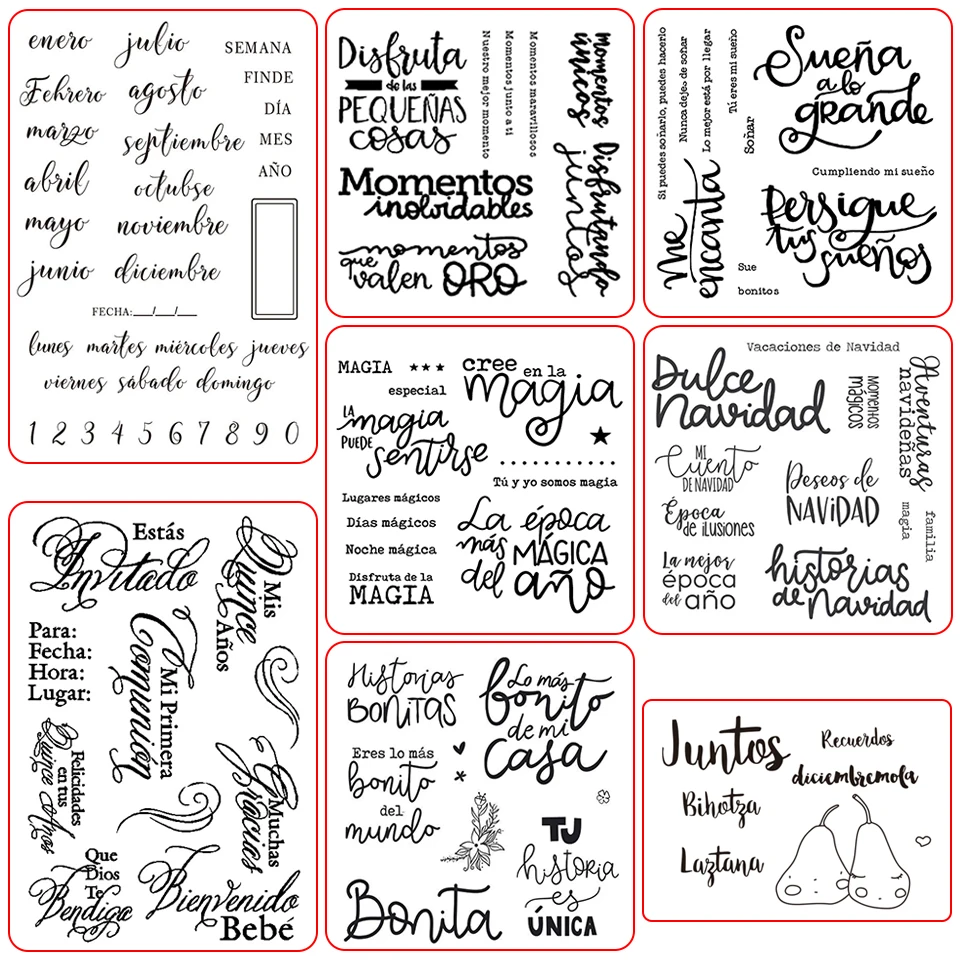 enero
julio
SEMANA
Febrero
agosto
FINDE
marzo
septiembre
DÍA
abril
octubse
MES
mayo
noviembre
AÑO
junio
diciembre
FECHA:__/__/__
lunes martes miércoles jueves
viernes sábado domingo
1 2 3 4 5 6 7 8 9 0
Disfruta
de las
PEQUEÑAS
cosas
Nuestro mejor momento
Momentos junto a ti
Momentos maravillosos
momentos
únicos
Momentos
inolvidables
Disfrutando
juntos
momentos
que
valen ORO
Si puedes soñarlo, puedes hacerlo
Nunca dejes de soñar
Lo mejor está por llegar
Tú eres mi sueño
Soñar
Sueña
a lo
grande
Cumpliendo mi sueño
Me
encanta
Persigue
tus
sueños
Sue
bonitos
MAGIA
especial
cree en la
magia
LA
magia
PUEDE
sentirse
Tú y yo somos magia
Lugares mágicos
Días mágicos
Noche mágica
Disfruta de la
MAGIA
La época
más MÁGICA
del año
Vacaciones de Navidad
Dulce
Navidad
Momentos
mágicos
Aventuras
navideñas
MI
Cuento
DE NAVIDAD
Deseos de
NAVIDAD
Época
de ilusiones
magia
familia
La mejor
época
del año
historias
de Navidad
Estás
Invitado
Mis
Quince
Años
Para:
Fecha:
Hora:
Lugar:
Mi Primera
Comunión
Felicidades
en tus
Quince Años
Muchas
Gracias
Que
Dios
Te
Bendiga
Bienvenido
Bebé
Historias
BONITAS
Lo más
bonito
de mi
Casa
Eres lo más
bonito
del
mundo
TU
historia
es
ÚNICA
Bonita
Juntos
Recuerdos
diciembremola
Bihotza
Laztana